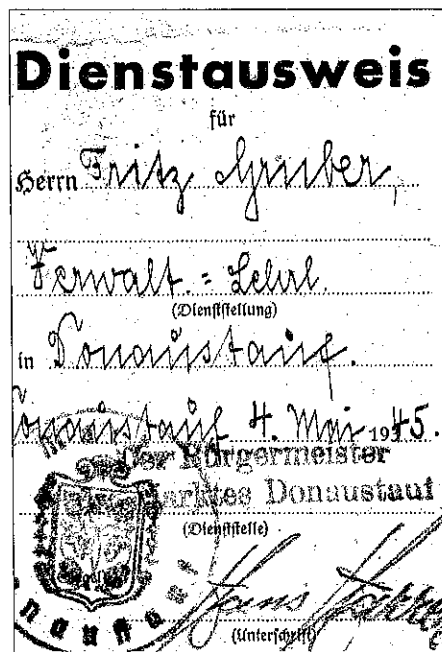 Dienstausweis
für
Herrn Fritz Gruber,
Verwalt.=Lehrl.
(Dienststellung)
in Donaustauf.
Donaustauf 4. Mai 1945.
Der Bürgermeister
Marktes Donaustauf
(Dienststelle)
Hans
(Unterschrift)